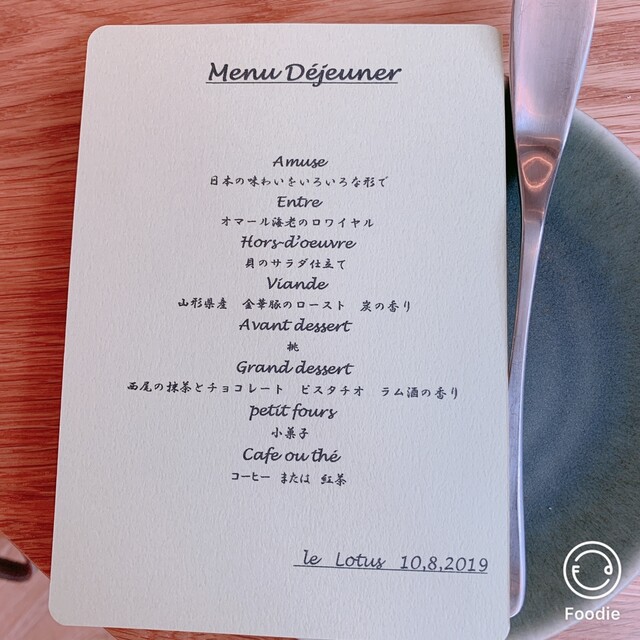 Menu Déjeuner
Amuse
日本の味わいをいろいろな形で
Entre
オマール海老のロワイヤル
Hors-d'oeuvre
貝のサラダ仕立て
Viande
山形県産　金華豚のロースト　炭の香り
Avant dessert
桃
Grand dessert
西尾の抹茶とチョコレート　ピスタチオ　ラム酒の香り
petit fours
小菓子
Cafe ou thé
コーヒー または 紅茶
le Lotus 10,8,2019
F d
Foodie